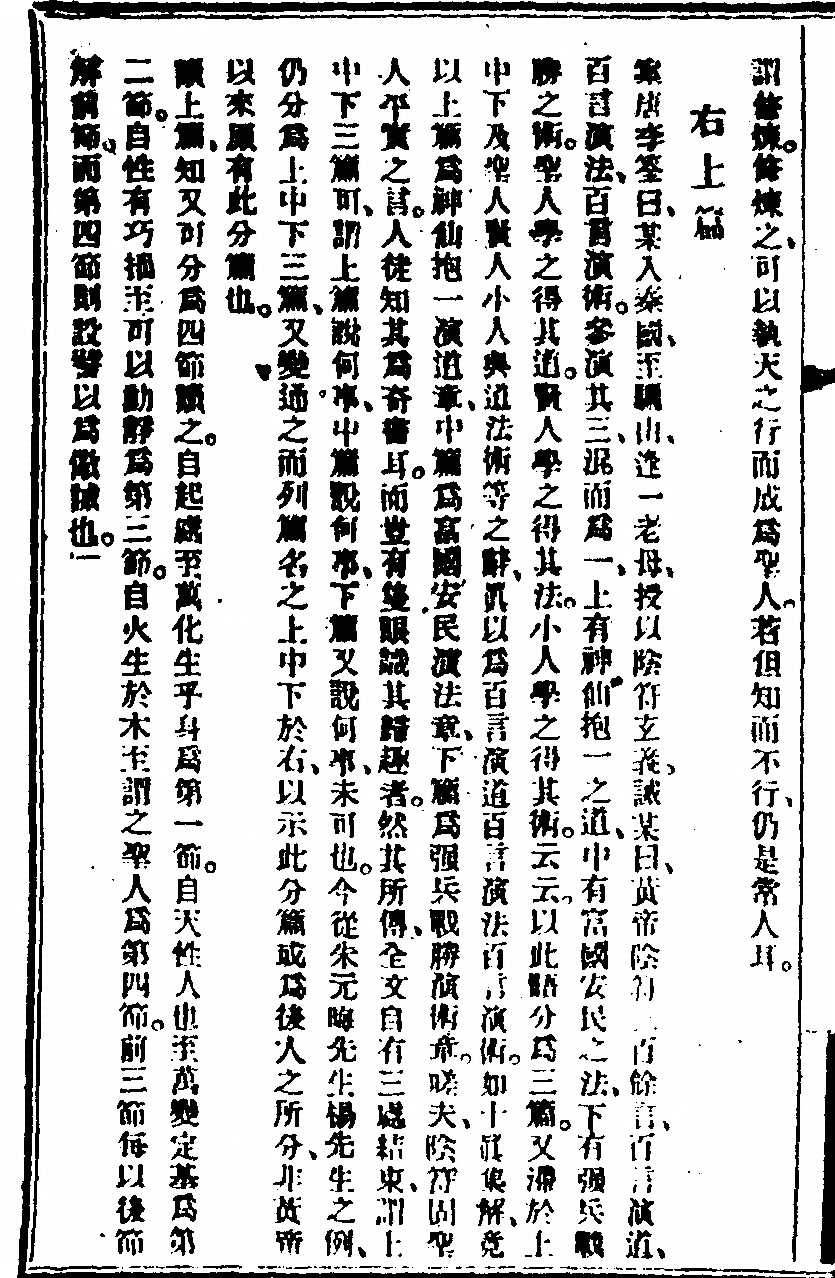 謂修煉。修煉之、可以執天之行而成爲聖人。若但知而不行、仍是常人耳。
右上篇
案唐李筌曰、某入秦國、至驪山、逢一老母、授以陰符玄義、誡某曰、黃帝陰符三百餘言、百言演道、
百言演法、百言演術。參演其三、混而爲一、上有神仙抱一之道、中有富國安民之法、下有强兵戰
勝之術。聖人學之得其道。賢人學之得其法。小人學之得其術。云云。以此語分爲三篇。又滯於上
中下及聖人賢人小人與道法術等之辭、眞以爲百言演道百言演法百言演術。如十眞集解、竟
以上篇爲神仙抱一演道章、中篇爲富國安民演法章、下篇爲强兵戰勝演術章。嗟夫、陰符固聖
人平實之言。人徒知其爲奇書耳。而豈有隻眼識其歸趣者。然其所傳、全文自有三處結束、謂上
中下三篇可、謂上篇說何事、中篇說何事、下篇又說何事、未可也。今從朱元晦先生楊先生之例、
仍分爲上中下三篇、又變通之而列篇名之上中下於右、以示此分篇或爲後人之所分、非黃帝
以來原有此分篇也。
讀上篇、知又可分爲四節讀之。自起處至萬化生乎身爲第一節。自天性人也至萬變定基爲第
二節。自性有巧拙至可以動靜爲第三節。自火生於木至謂之聖人爲第四節。前三節每以後節
解前節、而第四節則設譬以爲儆誡也。